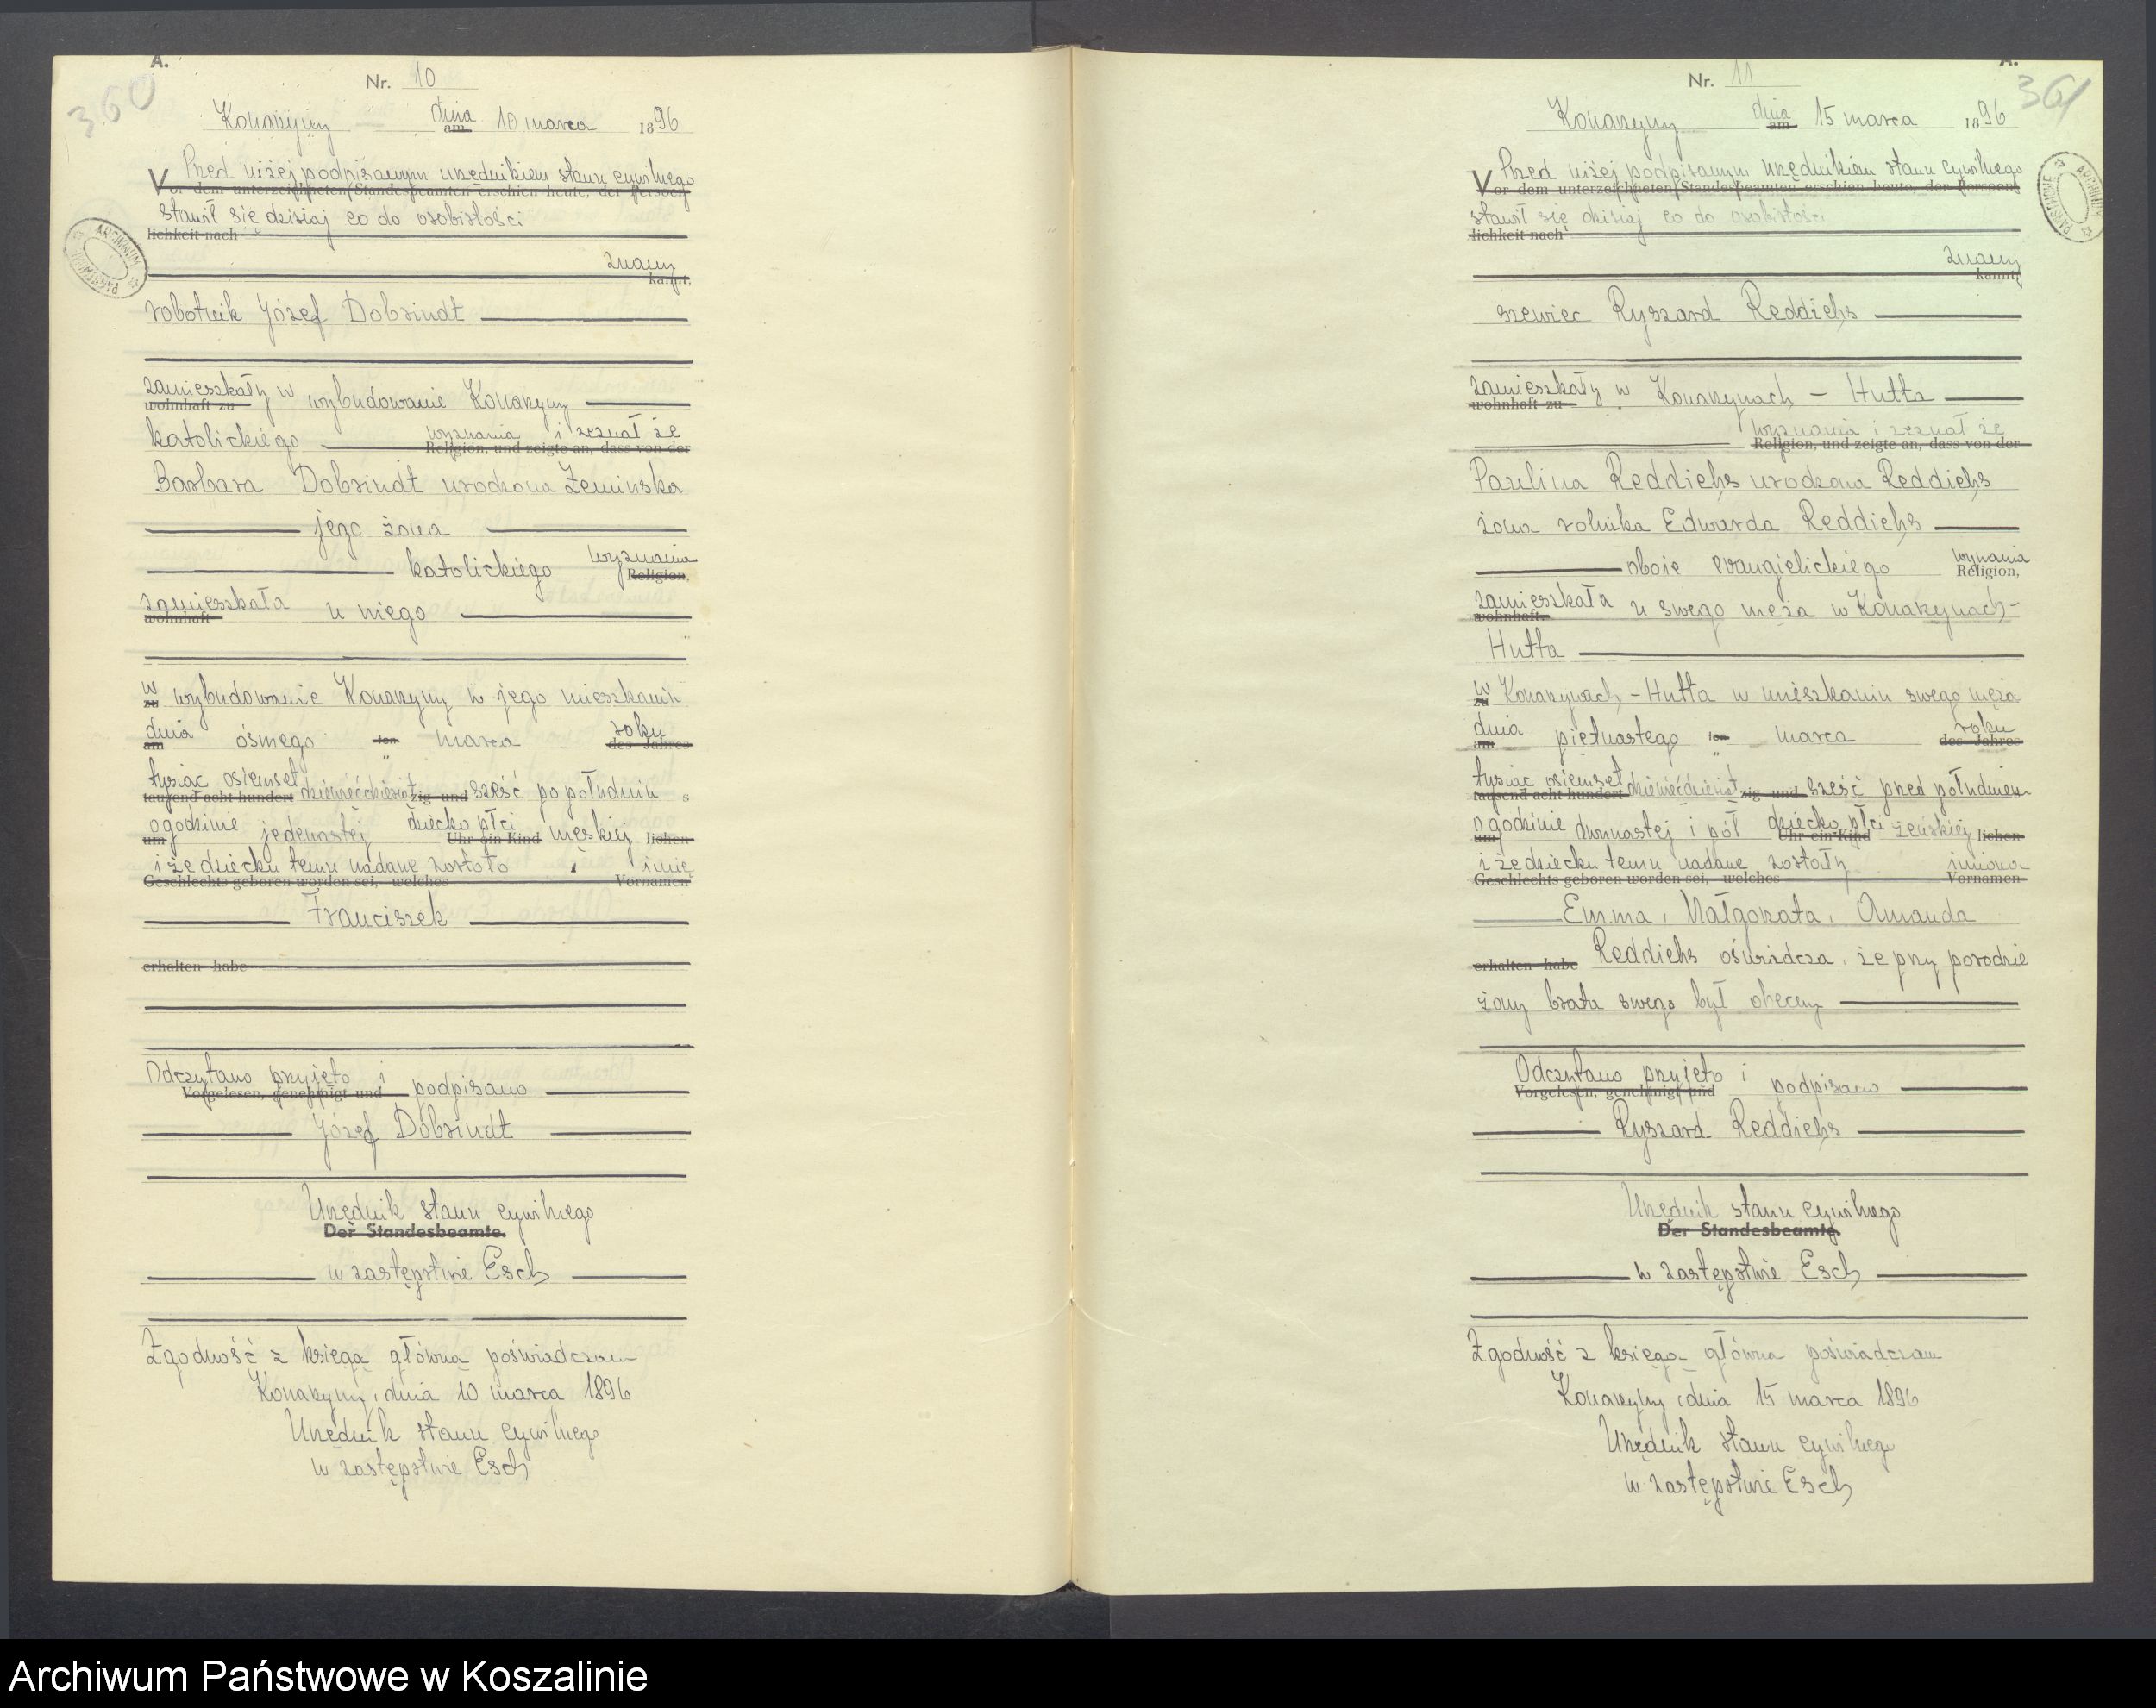 A.
Nr. 10
360
Konarzyny dnia am 10 marca 1896
Przed niżej podpisanym urzędnikiem stanu cywilnego
Vor dem unterzeichneten Standesbeamten erschien heute, der Persoen
stawił się dzisiaj co do osobistości
lichkeit nach
znany
kannt,
robotnik Józef Dobrindt
zamieszkały w wybudowanie Konarzyny
wohnhaft zu
katolickiego wyznania i zeznał że
Religion, und zeigte an, dass von der
Barbara Dobrindt urodzona Żeminska
jego żona
katolickiego wyznania
Religion,
zamieszkała u niego
wohnhaft
w wybudowanie Konarzyny w jego mieszkaniu
zu
dnia ósmego ten marca roku
am des Jahres
tysiąc osiemset dziewięćdziesiąt sześć popołudniu s
tausend acht hundert zig und
o godzinie jedenastej dziecko płci męskiej lichen
um Uhr ein Kind
i że dziecku temu nadane zostało imię
Geschlechts geboren worden sei, welches Vornamen
Franciszek
erhalten habe
Odczytano przyjęto i podpisano
Vorgelesen, genehmigt und
Józef Dobrindt
Urzędnik stanu cywilnego
Der Standesbeamte.
w zastępstwie Esch
Zgodność z księgą główną poświadczam
Konarzyny, dnia 10 marca 1896
Urzędnik stanu cywilnego
w zastępstwie Esch
ARCHIWUM PAŃSTWOWE
A.
Nr. 11
361
Konarzyny dnia am 15 marca 1896
Przed niżej podpisanym urzędnikiem stanu cywilnego
Vor dem unterzeichneten Standesbeamten erschien heute, der Persoen
stawił się dzisiaj co do osobistości
lichkeit nach
znany
kannt,
szewiec Ryszard Reddiehs
zamieszkały w Konarzynach - Hutta
wohnhaft zu
wyznania i zeznał że
Religion, und zeigte an, dass von der
Paulina Reddiehs urodzona Reddiehs
żona rolnika Edwarda Reddiehs
oboje ewangielickiego wynania
Religion,
zamieszkała u swego męża w Konarzynach-
wohnhaft
Hutta
w Konarzynach - Hutta w mieszkaniu swego męża
zu
dnia piętnastego ten marca roku
am des Jahres
tysiąc osiemset dziewięćdziesiąt sześć przed południem
tausend acht hundert zig und
o godzinie dwunastej i pół dziecko płci żeńskiej lichen
um Uhr ein Kind
i że dziecku temu nadane zostały imiona
Geschlechts geboren worden sei, welches Vornamen
Emma, Małgorzata, Amanda
erhalten habe Reddiehs oświadcza, że przy porodzie
żony brata swego był obecny
Odczytano przyjęto i podpisano
Vorgelesen, genehmigt und
Ryszard Reddiehs
Urzędnik stanu cywilnego
Der Standesbeamte.
w zastępstwie Esch
Zgodność z księgą główną poświadczam
Konarzyny, dnia 15 marca 1896
Urzędnik stanu cywilnego
w zastępstwie Esch
ARCHIWUM PAŃSTWOWE
Archiwum Państwowe w Koszalinie